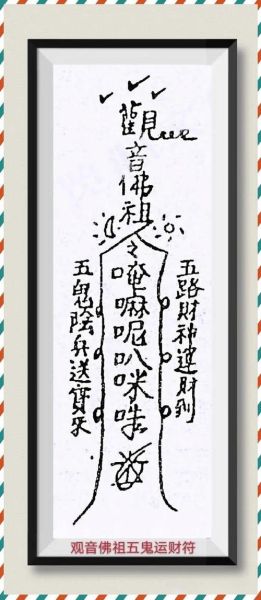 觀音佛祖
令
唵嘛呢叭咪吽
五路財神運財到
五鬼陰兵送寶來
观音佛祖五鬼运财符